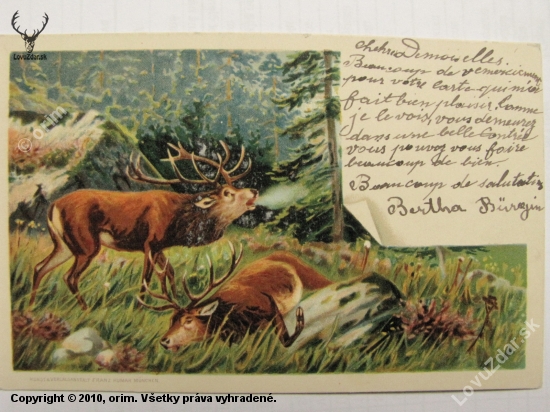 LovuZdar.sk
© orim
Chères Demoiselles.
Beaucoup de remerciements
pour votre carte qui m'a
fait bien plaisir, comme
je le vois, vous demeurez
dans une belle contrée
vous pouvez vous faire
beaucoup de bien.
Beaucoup de salutations
Bertha
LovuZdar.sk
Copyright © 2010, orim. Všetky práva vyhradené.